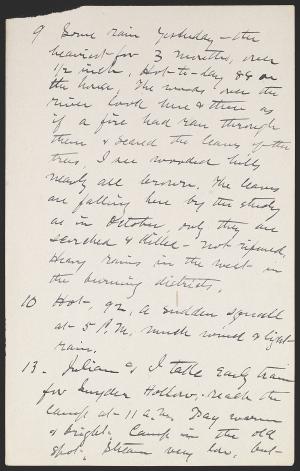 9 Some rain yesterday - the
heaviest for 3 months, over
1/2 inch. Hot to-day 88 on
the house. The woods over the
river look here & there as
if a fire had ran through
them & seared the leaves of the
trees. I see wooded hills
nearly all brown. The leaves
are falling here by the study
as in October, only they are
scorched & killed - not ripened.
Heavy rains in the west in
the burning districts.
10 Hot, 92, a sudden squall
at 5 P.M. much wind & light
rain.
13. Julian & I take early train
for Snyder Hollow, reach the
camp at 11 a.m. Day warm
& bright. Camp in the old
spot. Stream very low, but